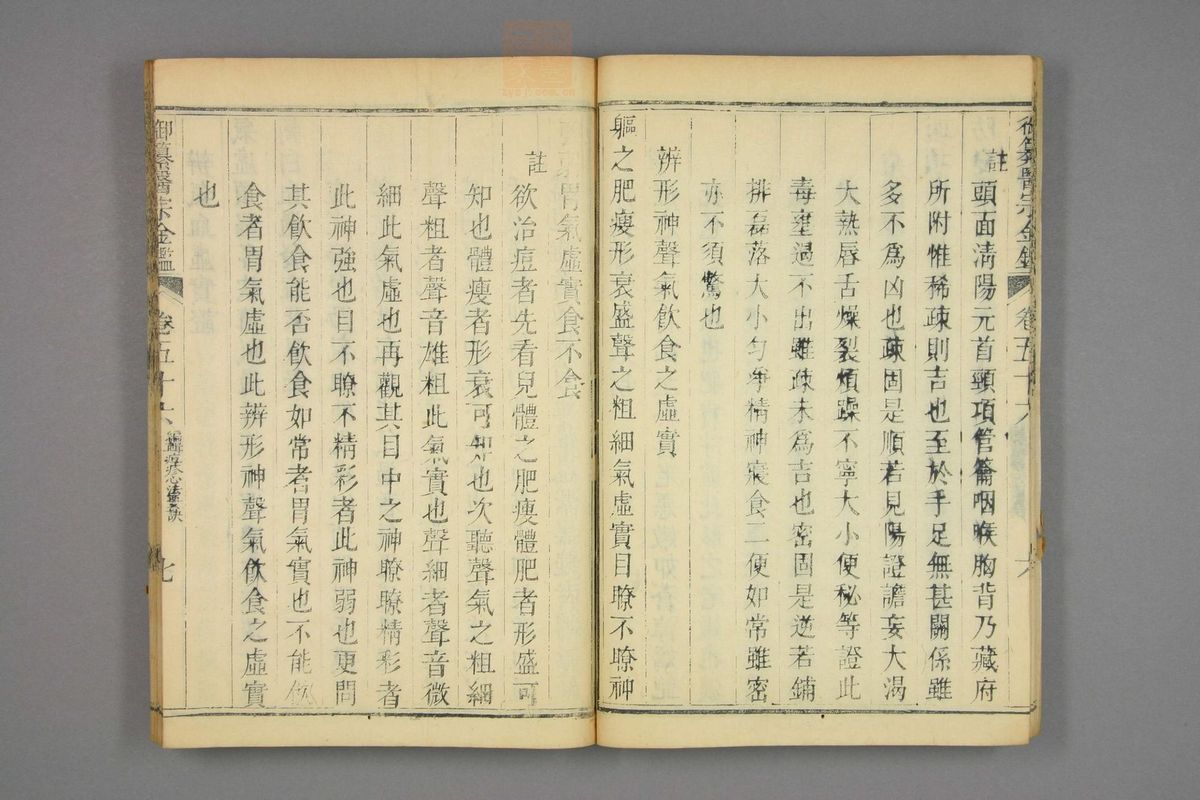 御纂醫宗金鑑 卷五十六 六
註
頭面清陽元首頸項管籥咽喉胸背乃藏府
所附惟稀疎則吉也至於手足無甚關係雖
多不為凶也疎固是順若見陽證譫妄大渴
大熱唇舌燥裂煩躁不寧大小便秘等證此
毒壅遏不出雖疎未為吉也密固是逆若鋪
排磊落大小勻淨精神寢食二便如常雖密
亦不須驚也
辨形神聲氣飲食之虛實
軀之肥瘦形衰盛聲之粗細氣虛實目瞭不瞭神
胃氣虛實食不食
註
欲治痘者先看兒體之肥瘦體肥者形盛可
知也體瘦者形衰可知也次聽聲氣之粗細
聲粗者聲音雄粗此氣實也聲細者聲音微
細此氣虛也再觀其目中之神瞭瞭精彩者
此神強也目不瞭不精彩者此神弱也更問
其飲食能否飲食如常者胃氣實也不能飲
食者胃氣虛也此辨形神聲氣飲食之虛實
也
御纂醫宗金鑑 卷五十六 編輯痘疹心法要訣 七
zysj.com.cn